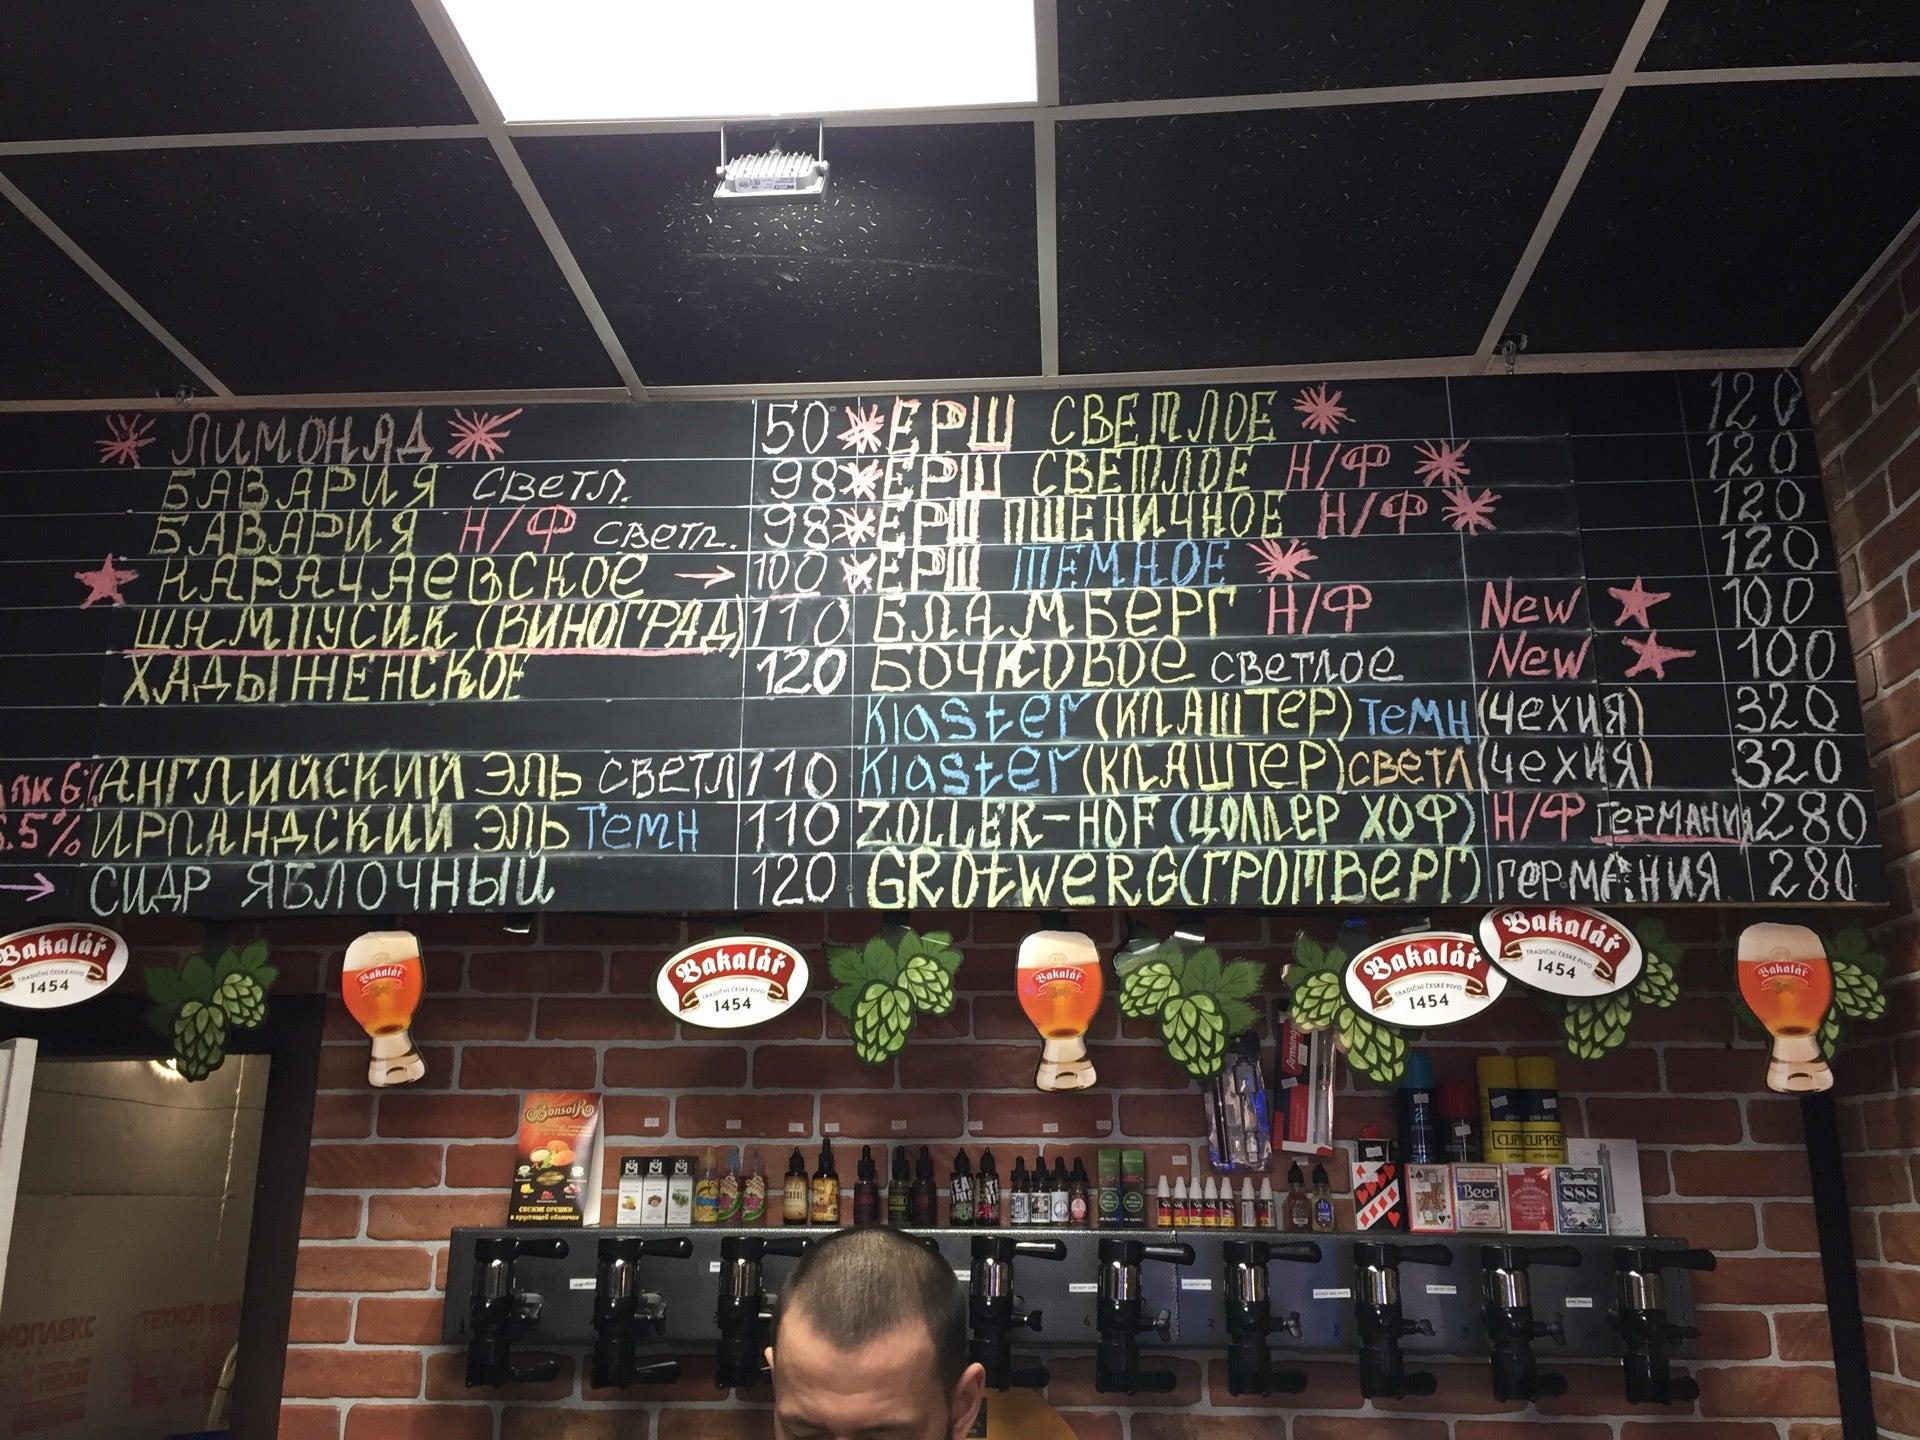 ЛИМОНАД 50
БАВАРИЯ СВЕТЛ. 98
БАВАРИЯ Н/Ф СВЕТЛ. 98
КАРАЧАЕВСКОЕ → 100
ШАМПУСИК (ВИНОГРАД) 110
ХАДЫЖЕНСКОЕ 120
6% АНГЛИЙСКИЙ ЭЛЬ СВЕТЛ 110
5% ИРЛАНДСКИЙ ЭЛЬ ТЕМН 110
→ СИДР ЯБЛОЧНЫЙ 120
ЕРШ СВЕТЛОЕ 120
ЕРШ СВЕТЛОЕ Н/Ф 120
ЕРШ ПШЕНИЧНОЕ Н/Ф 120
ЕРШ ТЕМНОЕ 120
БЛАМБЕРГ Н/Ф New 100
БОЧКОВОЕ СВЕТЛОЕ New 100
Klaster (КЛАШТЕР) ТЕМН (ЧЕХИЯ) 320
Klaster (КЛАШТЕР) СВЕТЛ (ЧЕХИЯ) 320
ZOLLER-HOF (ЦОЛЛЕР ХОФ) Н/Ф ГЕРМАНИЯ 280
GROtWERG (ГРОТВЕРГ) ГЕРМАНИЯ 280
Bakalář
TRADIČNÍ ČESKÉ PIVO
1454
Bakalář
Bakalář
TRADIČNÍ ČESKÉ PIVO
1454
Bakalář
Bakalář
TRADIČNÍ ČESKÉ PIVO
1454
Bakalář
TRADIČNÍ ČESKÉ PIVO
1454
Bakalář
BonsoiR
СВЕЖИЕ ОРЕШКИ
в хрустящей оболочке
CLIPPER
Beer
888